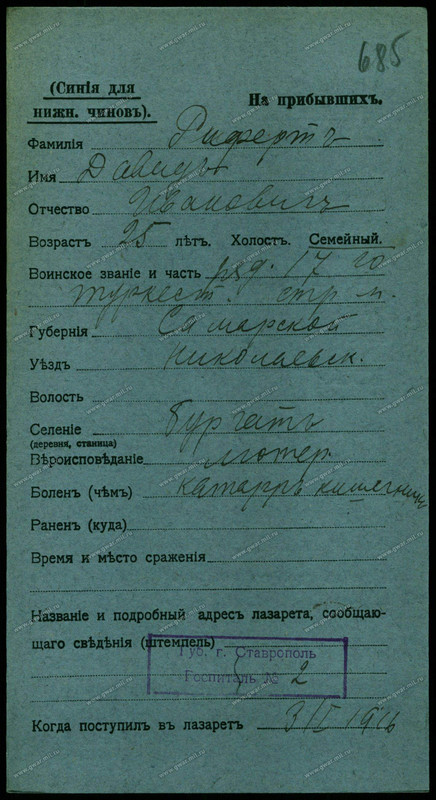 685
(Синія для
нижн. чиновъ).
На прибывшихъ.
Фамилія Рифертъ
Имя Давидъ
Отчество Ивановичъ
Возрастъ 25 лѣтъ. Холост. Семейный.
Воинское званіе и часть ряд. 17 го
туркест. стр. п.
Губернія Самарской
Уѣздъ Николаевск.
Волость
Селеніе Бургатъ
(деревня, станица)
Вѣроисповѣданіе лютер.
Боленъ (чѣмъ) катарръ кишечника
Раненъ (куда)
Время и мѣсто сраженія
Названіе и подробный адресъ лазарета, сообщаю-
щаго свѣдѣнія (штемпель)
Губ. г. Ставрополь
Госпиталь № 2
Когда поступилъ въ лазаретъ 3/II 1916
www.gwar.mil.ru